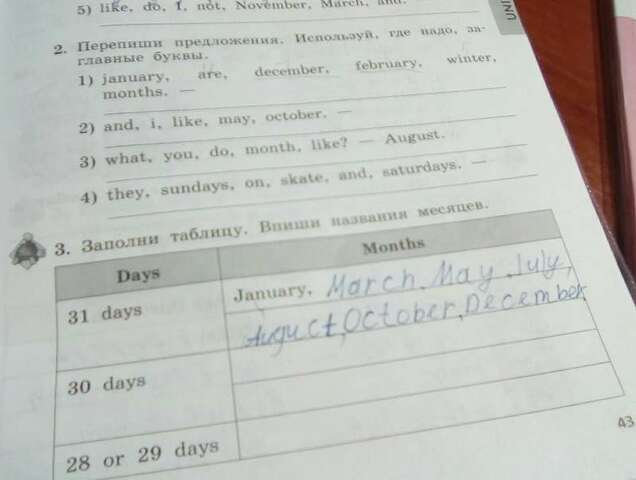 5) like, do, I, not, November, March, and.
UNI
2. Перепиши предложения. Используй, где надо, за-
главные буквы.
1) january, are, december, february, winter,
months. —
2) and, i, like, may, october. —
3) what, you, do, month, like? — August.
4) they, sundays, on, skate, and, saturdays. —
3. Заполни таблицу. Впиши названия месяцев.
Days Months
31 days January, March, May, July,
August, October, December,
30 days
28 or 29 days
43